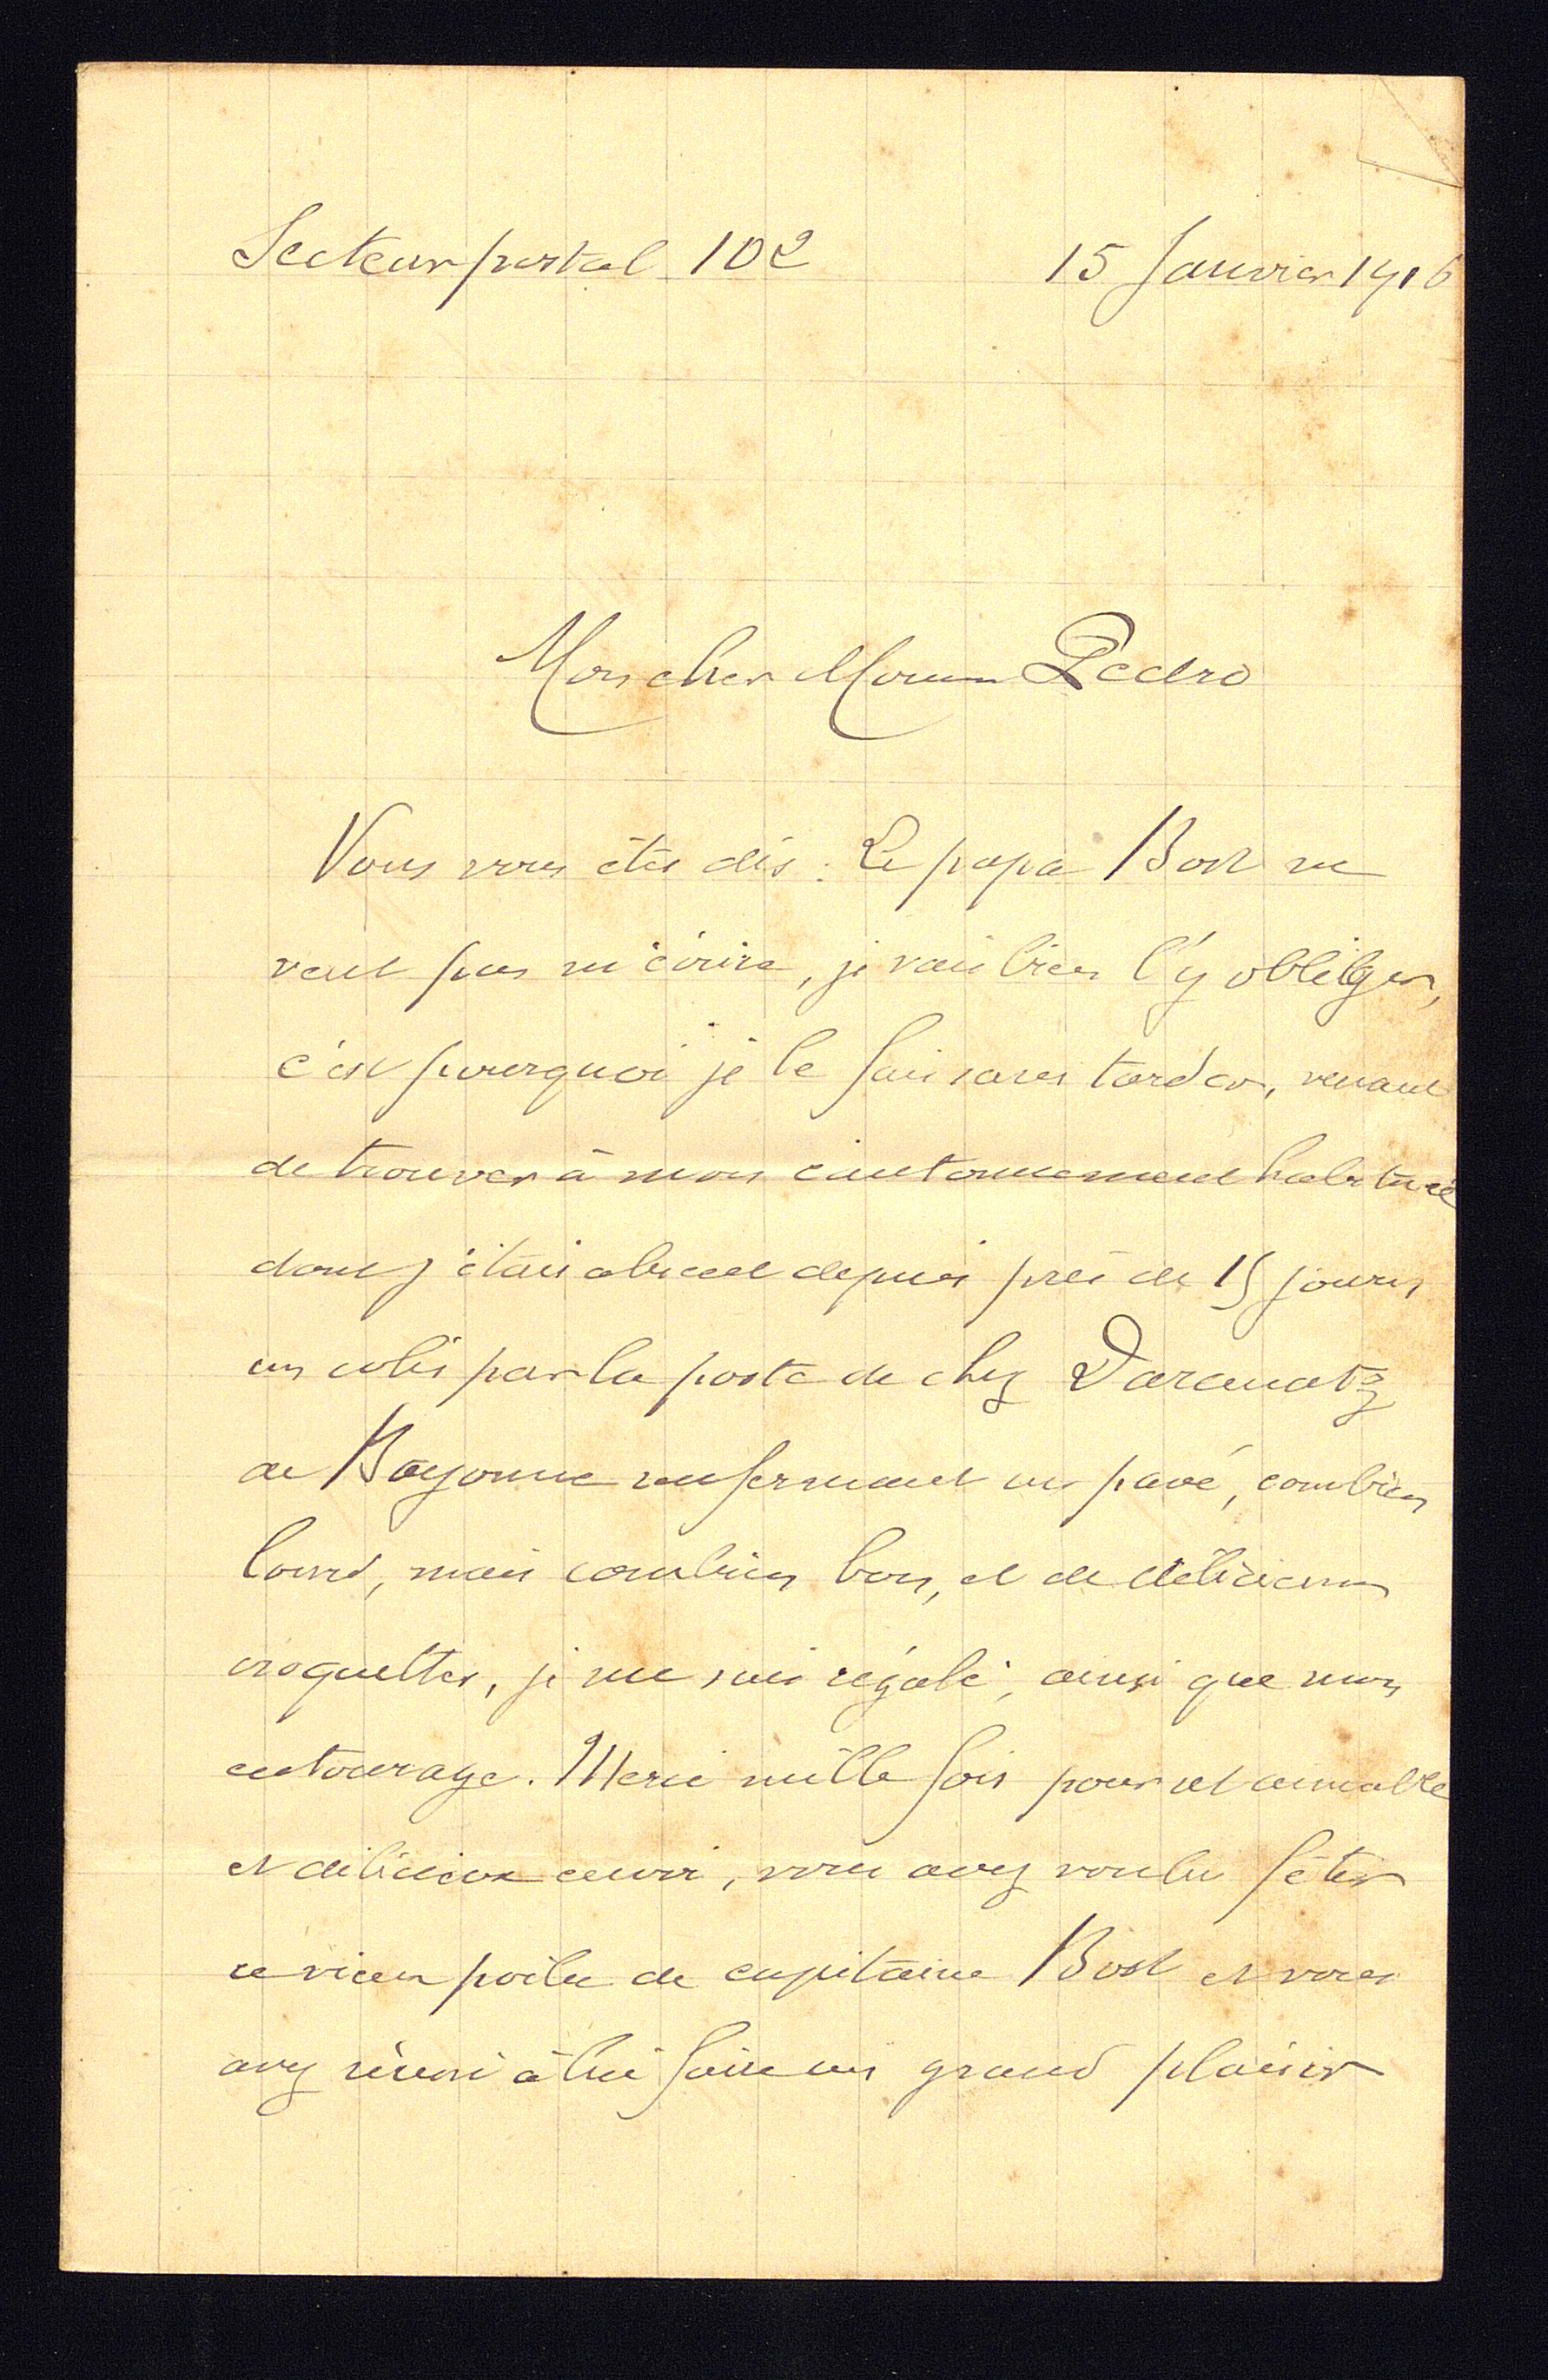 Secteur postal 102 15 Janvier 1916
Mon cher Pedro
Vous vous êtes dis : Le papa Bost ne
veut pas m'écrire, je vais bien l'y obliger,
c'est pourquoi je le fais sans tarder, venant
de trouver à mon cantonnement habituel
dont j'étais absent depuis près de 15 jours
un colis par la poste de chez Daranatz
de Bayonne renfermant un pavé, combien
lourd, mais combien bon, et de délicieuses
croquettes, je me suis régalé, ainsi que mon
entourage. Merci mille fois pour cet aimable
et délicieux envoi, vous avez voulu fêter
ce vieux poilu de capitaine Bost et vous
avez réussi à lui faire un grand plaisir